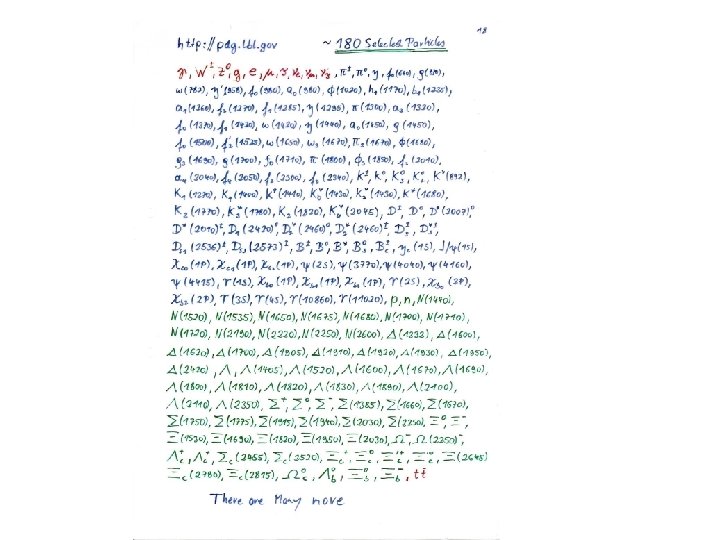 18
http://pdg.lbl.gov ~ 180 Selected Particles
γ, W±, Z⁰, g, e, μ, τ, νe, νμ, ντ, π±, π⁰, η, f₀(600), ρ(770),
ω(782), η'(958), f₀(980), a₀(980), φ(1020), h₁(1170), b₁(1235),
a₁(1260), f₂(1270), f₁(1285), η(1295), π(1300), a₂(1320),
f₀(1370), f₁(1420), ω(1420), η(1440), a₀(1450), ρ(1450),
f₀(1500), f₂'(1525), ω(1650), ω₃(1670), π₂(1670), φ(1680),
ρ₃(1690), ρ(1700), f₀(1710), π(1800), φ₃(1850), f₂(2010),
a₄(2040), f₄(2050), f₂(2300), f₂(2340), K±, K⁰, K⁰s, K⁰L, K*(892),
K₁(1270), K₁(1400), K*(1410), K₀*(1430), K₂*(1430), K*(1680),
K₂(1770), K₃*(1780), K₂(1820), K₄*(2045), D±, D⁰, D*(2007)⁰,
D*(2010)±, D₁(2420)⁰, D₂*(2460)⁰, D₂*(2460)±, Ds±, Ds*±,
Ds1(2536)±, DsJ(2573)±, B±, B⁰, B*, Bs⁰, Bc±, ηc(1S), J/ψ(1S),
χc0(1P), χc1(1P), χc2(1P), ψ(2S), ψ(3770), ψ(4040), ψ(4160),
ψ(4415), Υ(1S), χb0(1P), χb1(1P), χb2(1P), Υ(2S), χb0(2P),
χb2(2P), Υ(3S), Υ(4S), Υ(10860), Υ(11020), p, n, N(1440),
N(1520), N(1535), N(1650), N(1675), N(1680), N(1700), N(1710),
N(1720), N(2190), N(2220), N(2250), N(2600), Δ(1232), Δ(1600),
Δ(1620), Δ(1700), Δ(1905), Δ(1910), Δ(1920), Δ(1930), Δ(1950),
Δ(2420), Λ, Λ(1405), Λ(1520), Λ(1600), Λ(1670), Λ(1690),
Λ(1800), Λ(1810), Λ(1820), Λ(1830), Λ(1890), Λ(2100),
Λ(2110), Λ(2350), Σ⁺, Σ⁰, Σ⁻, Σ(1385), Σ(1660), Σ(1670),
Σ(1750), Σ(1775), Σ(1915), Σ(1940), Σ(2030), Σ(2250), Ξ⁰, Ξ⁻,
Ξ(1530), Ξ(1690), Ξ(1820), Ξ(1950), Ξ(2030), Ω⁻, Ω(2250)⁻,
Λc⁺, Λc⁺, Σc(2455), Σc(2520), Ξc⁺, Ξc⁰, Ξc'⁺, Ξc'⁰, Ξ(2645)
Ξc(2780), Ξc(2815), Ωc⁰, Λb⁰, Ξb⁰, Ξb⁻, tt̄
There are Many more